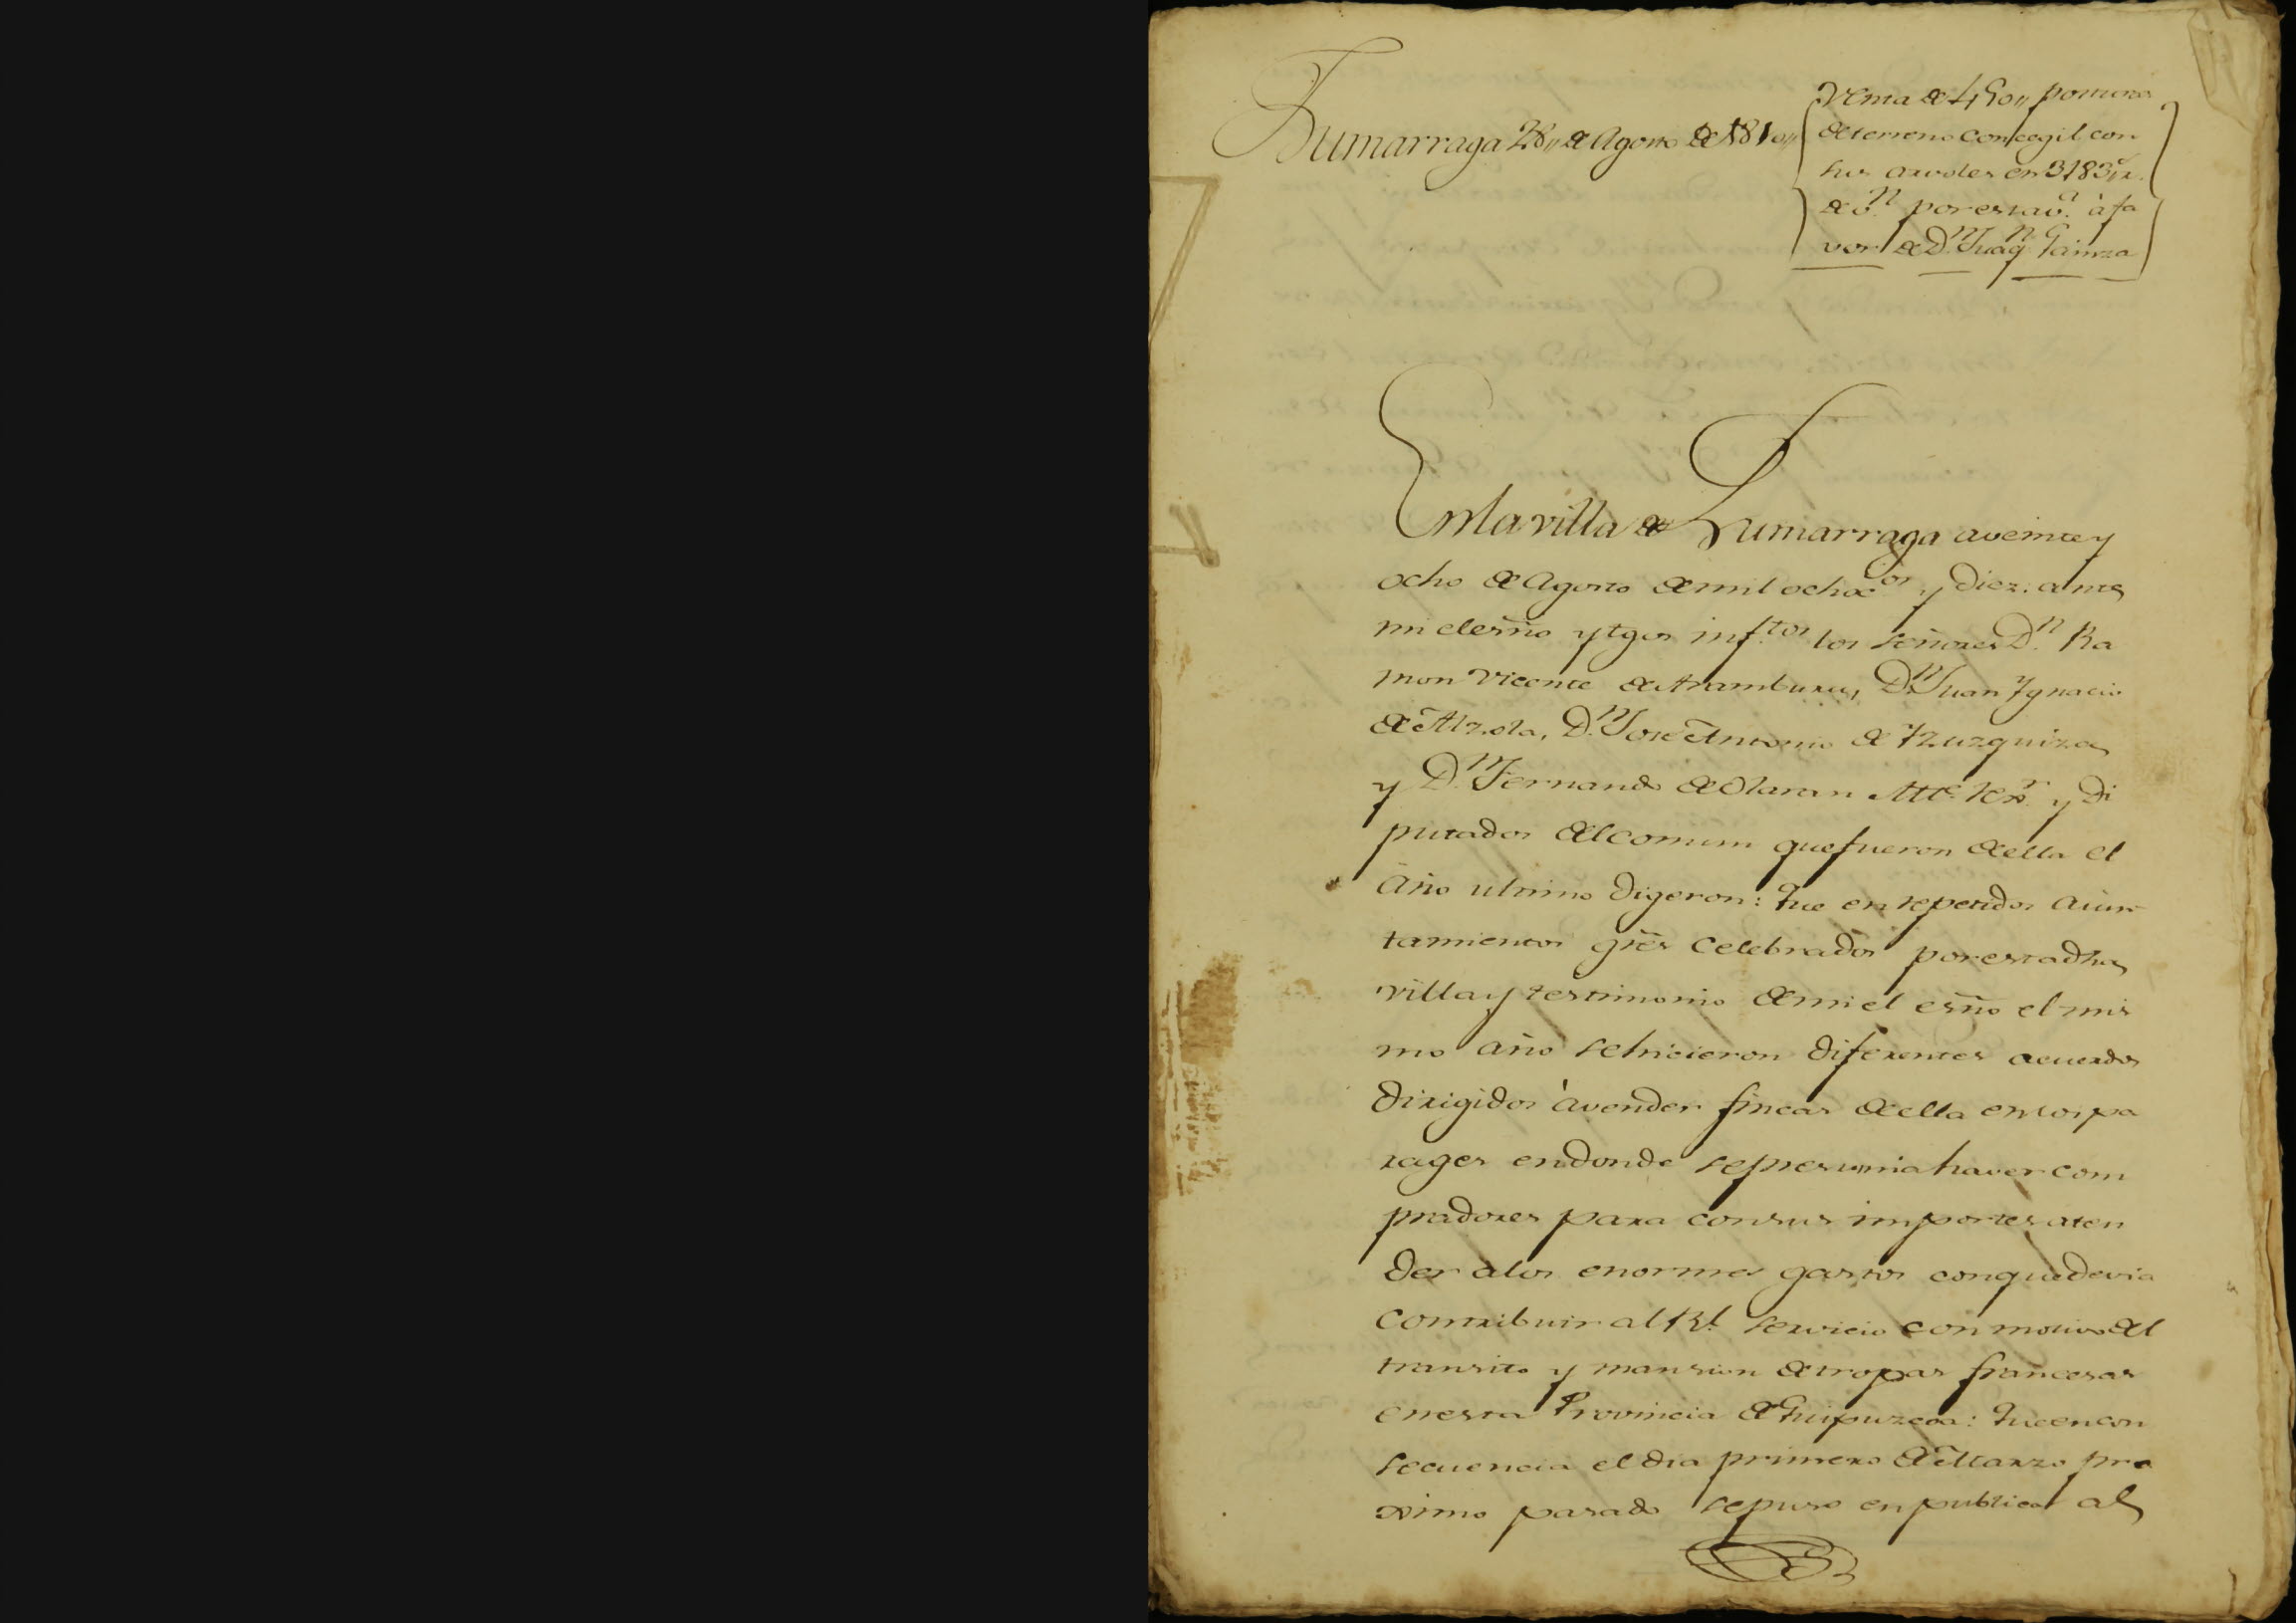 Zumarraga 28,, de Agosto de 1810,,
Venta de 450,, posturas
de terreno concegil con
sus arvoles en 3183 r.
de v.n por esta v.a à fa
vor de D.n Juaq.n Gainza
En la villa de Zumarraga a veinte y
ocho de Agosto de mil ochoc.os y diez. ante
mi el esño y tgos inf.tos los señores D.n Ra
mon Vicente de Aramburu, D.n Juan Ygnacio
de Alzola, D.n Jose Antonio de Yzuzquiza
y D.n Fernando de Olaran Alc.e Rex.r y Di
putados del comun que fueron de ella el
año ultimo digeron: Que en repetidos aiun
tamientos grẽs celebrados por esta dha
villa y testimonio de mi el esño el mis
mo año se hicieron diferentes acuerdos
dirigidos à vender fincas de ella en los pa
rages en donde se presumia haver com
pradores para con sus importes aten
der a los enormes gastos con que devia
contribuir al Rl. servicio con motivo del
transito y mansion de tropas francesas
en esta Provincia de Guipuzcoa: Que en con
secuencia el dia primero de Marzo pro
ximo pasado se puso en publica al